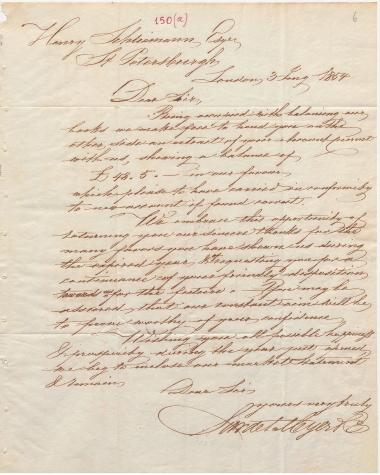 150(a)
6
Henry Schliemann, Esqre,
St Petersburgh.
London, 3 Jany 1854
Dear Sir,
Being occupied with balancing our
books we make free to hand you on the
other side an extract of your account current
with us, shewing a balance of
£ 43. 5. – in our favour
which please to have carried in conformity
to new account if found correct.
We embrace this opportunity of
returning you our sincere thanks for the
many favors you have shewn us during
the expired year & requesting you for a
continuance of your friendly disposition
toward for the future. You may be
assured that our constant aim will be
to prove worthy of your confidence
Wishing you all possible happiness
& prosperity during the year just
we beg to inclose our market statement
& remain
Dear Sir
yours very truly